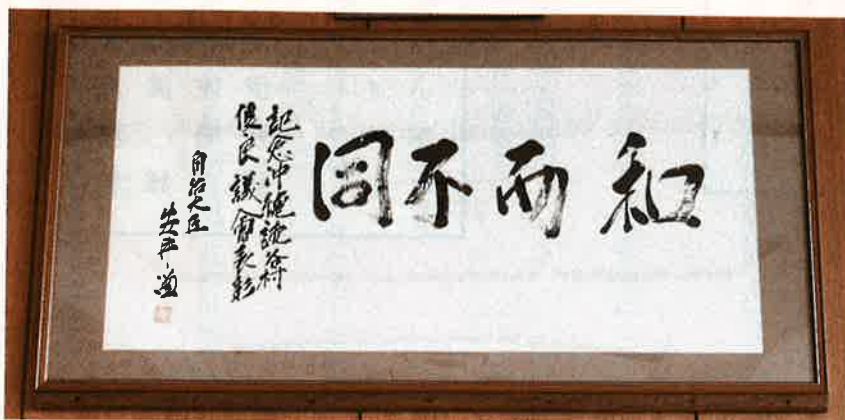 和而不同
記念沖縄読谷村
優良議會表彰
自治大臣